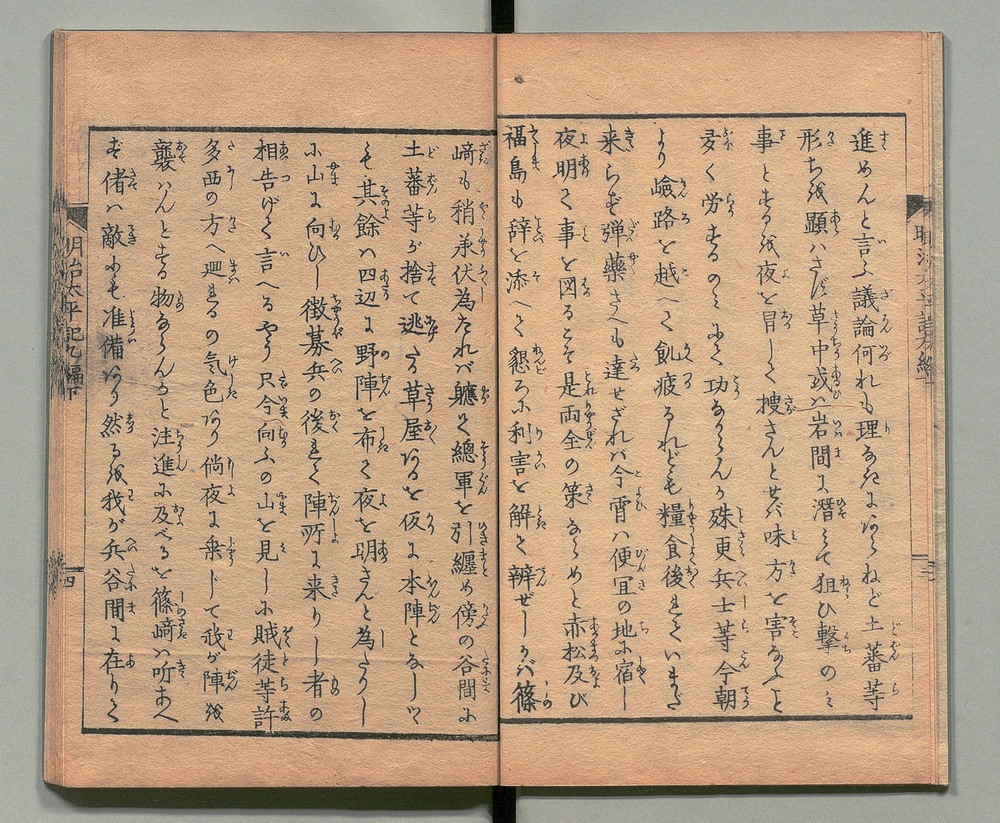 進めんと言ふ議論何れも理なきにあらねど土蕃等
形ちを顕ハさず草中或ハ岩間に潜ミて狙ひ撃のミ
事とするを夜を冒して捜さんとせバ味方を害なふこと
多く労するのミにて功なからんか殊更兵士等今朝
より嶮路を越へて飢疲るれども糧食後れていまだ
来らず弾薬さへも達せざれハ今宵ハ便宜の地に宿し
夜明て事を図るこそ是両全の策ならめと赤松及び
福島も辞を添へて懇ろに利害を解て辨ぜしかバ篠
﨑も稍承伏為たれバ軈て總軍を引纏め傍の谷間に
土蕃等が捨て逃たる草屋あるを仮に本陣となしツ
ゝ其餘ハ四辺に野陣を布て夜を明さんと為たりし
に山に向ひし徴募兵の後れて陣所に来りし者の
相告げて言へるやう只今向ふの山を見しに賊徒等許
多西の方へ廻るの気色あり倘夜に乗トして我が陣を
襲ハんとする物ならんかと注進に及べるを篠﨑ハ听あへ
ず偖ハ敵にも准備あり然るを我が兵谷間に在りて
明治太平記九編下
四